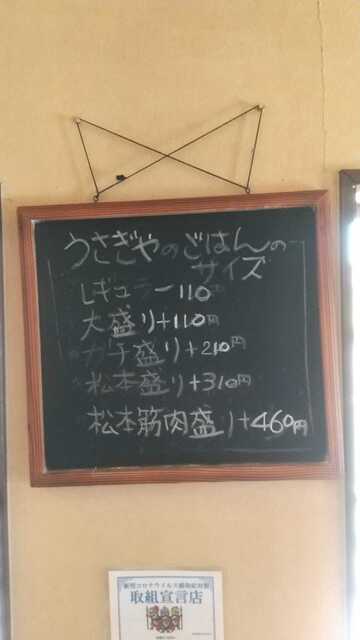 うさぎやのごはんの
サイズ
レギュラー110円
大盛り+110円
ガチ盛り+210円
松本盛り+310円
松本筋肉盛り+460円
新型コロナウイルス感染症対策
取組宣言店